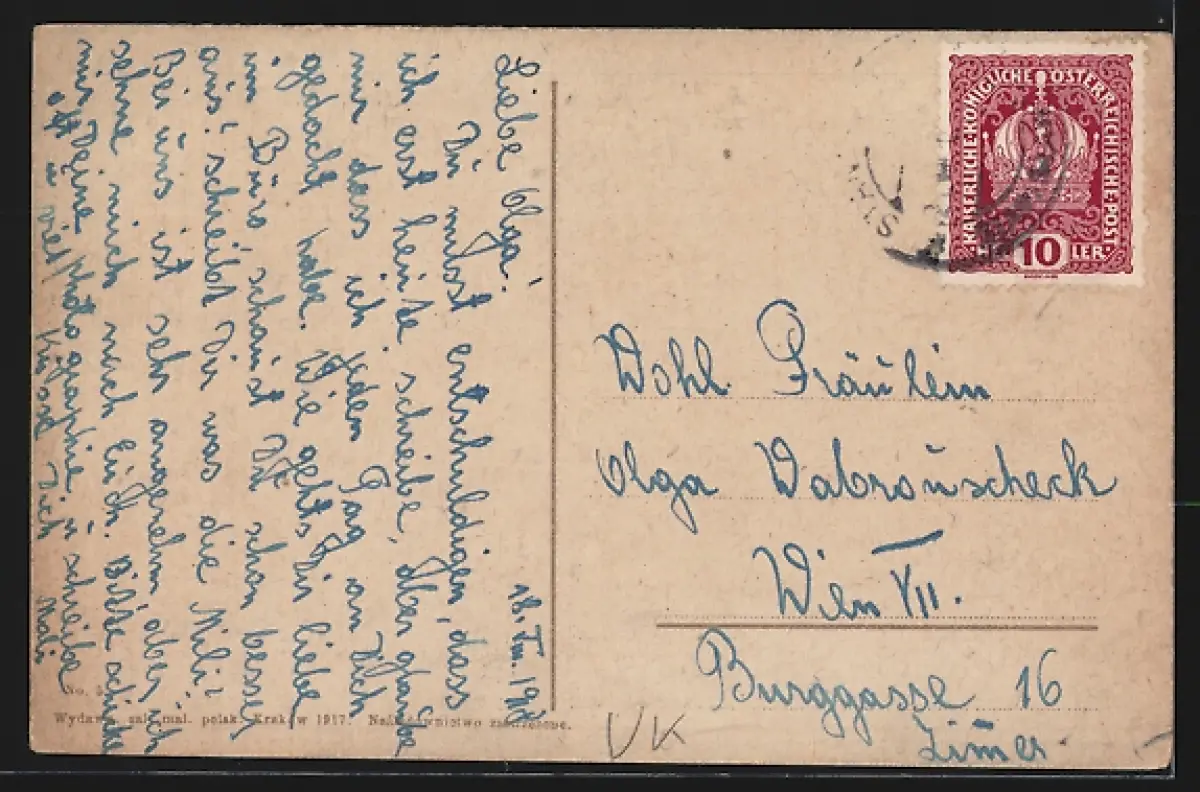 18. III. 19
Liebe Olga!
Du musst entschuldigen, dass
ich erst heute schreibe, aber glaube
mir dass ich jeden Tag an Dich
gedacht habe. Wie gehts Dir liebe
im Büro schaust Du schon besser
aus? schreibt Dir was die Mili?
Bei uns ist sehr angenehm aber ich
sehne mich nach Euch. Bitte schicke
mir Deine Photographie u schreibe
oft u viel, Dich
KAISERLICHE·KÖNIGLICHE ÖSTERREICHISCHE·POST
10 LER·
Wohl Fräulein
Olga Dabrouscheck
Wien VII.
Burggasse 16
Zimer
VK
No.
Wydawn. sal. mal. polsk. Kraków 1917. Naśladownictwo zastrzeżone.